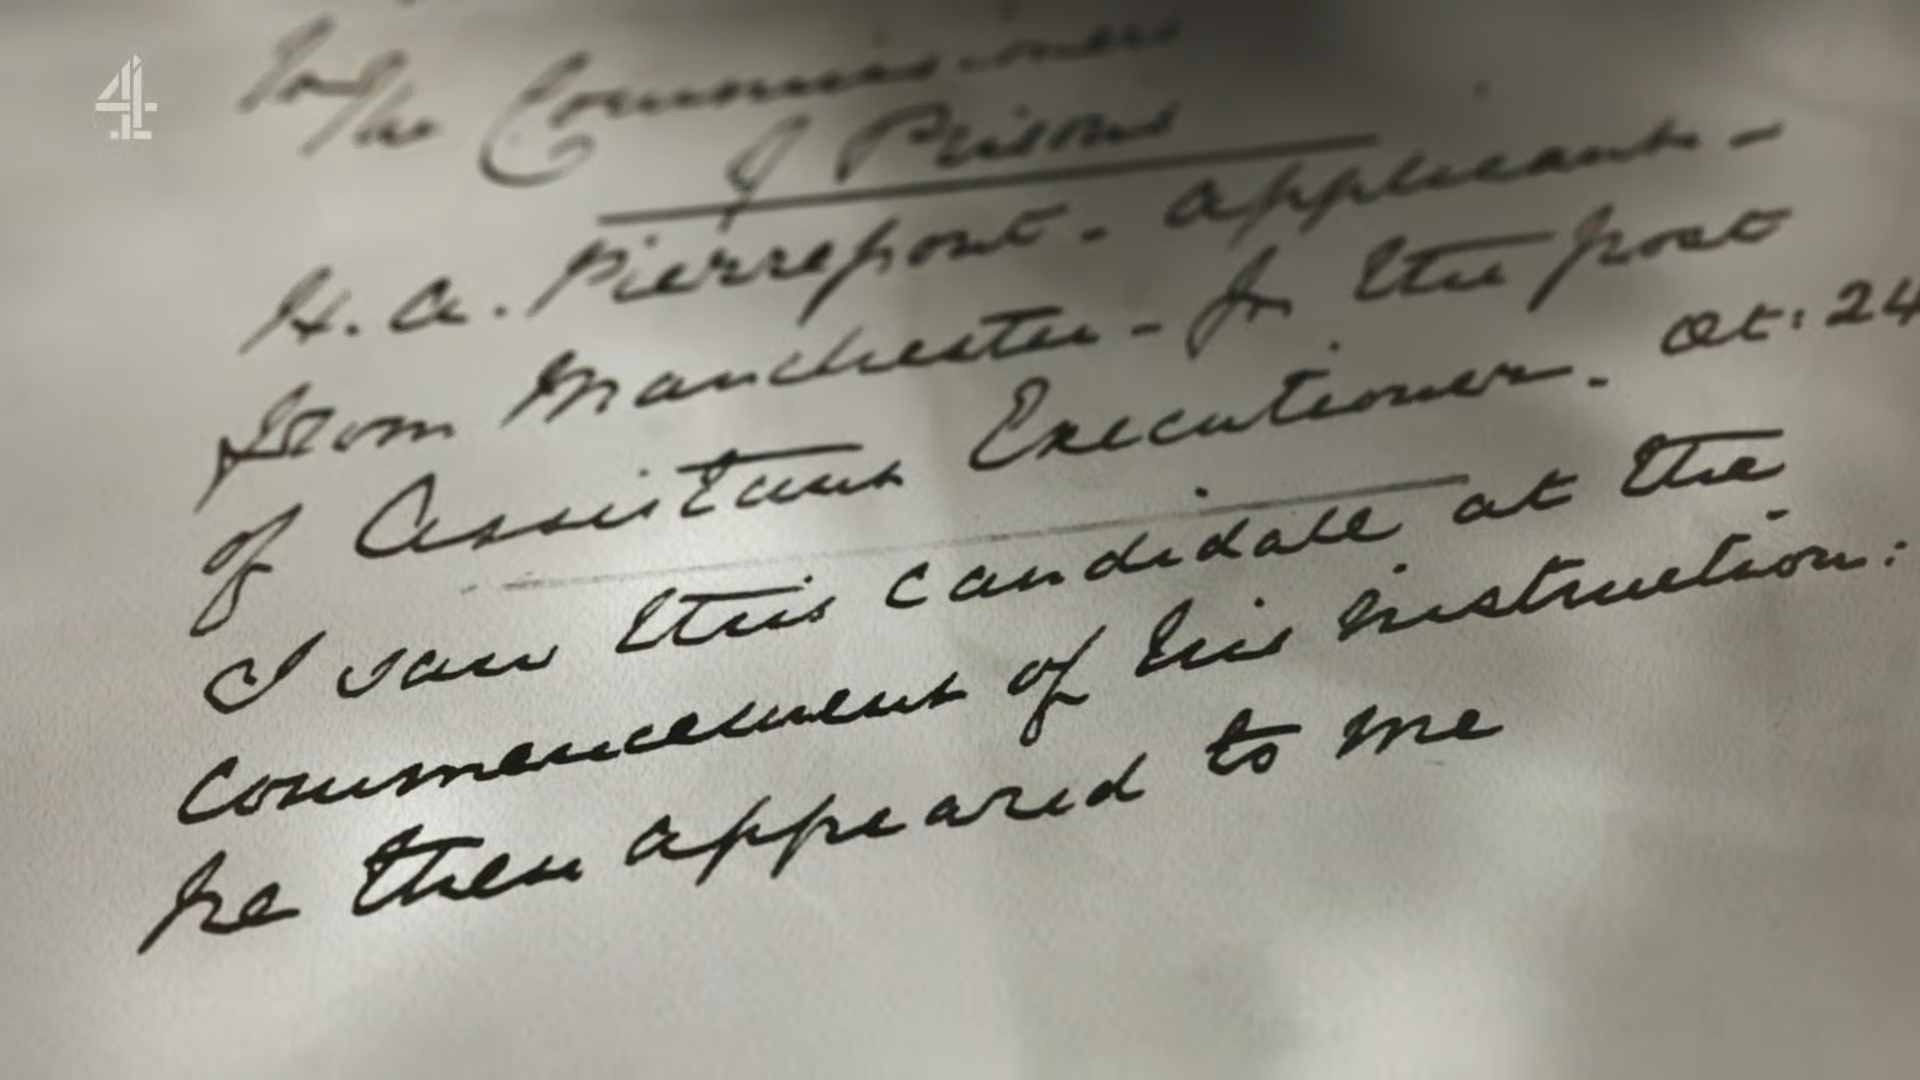 4
To/
The Commissioners
of Prisons
H. A. Pierrepont - applicant -
from Manchester - for the post
of Assistant Executioner. at: 24
I saw this candidate at the
commencement of his instruction:
he then appeared to me